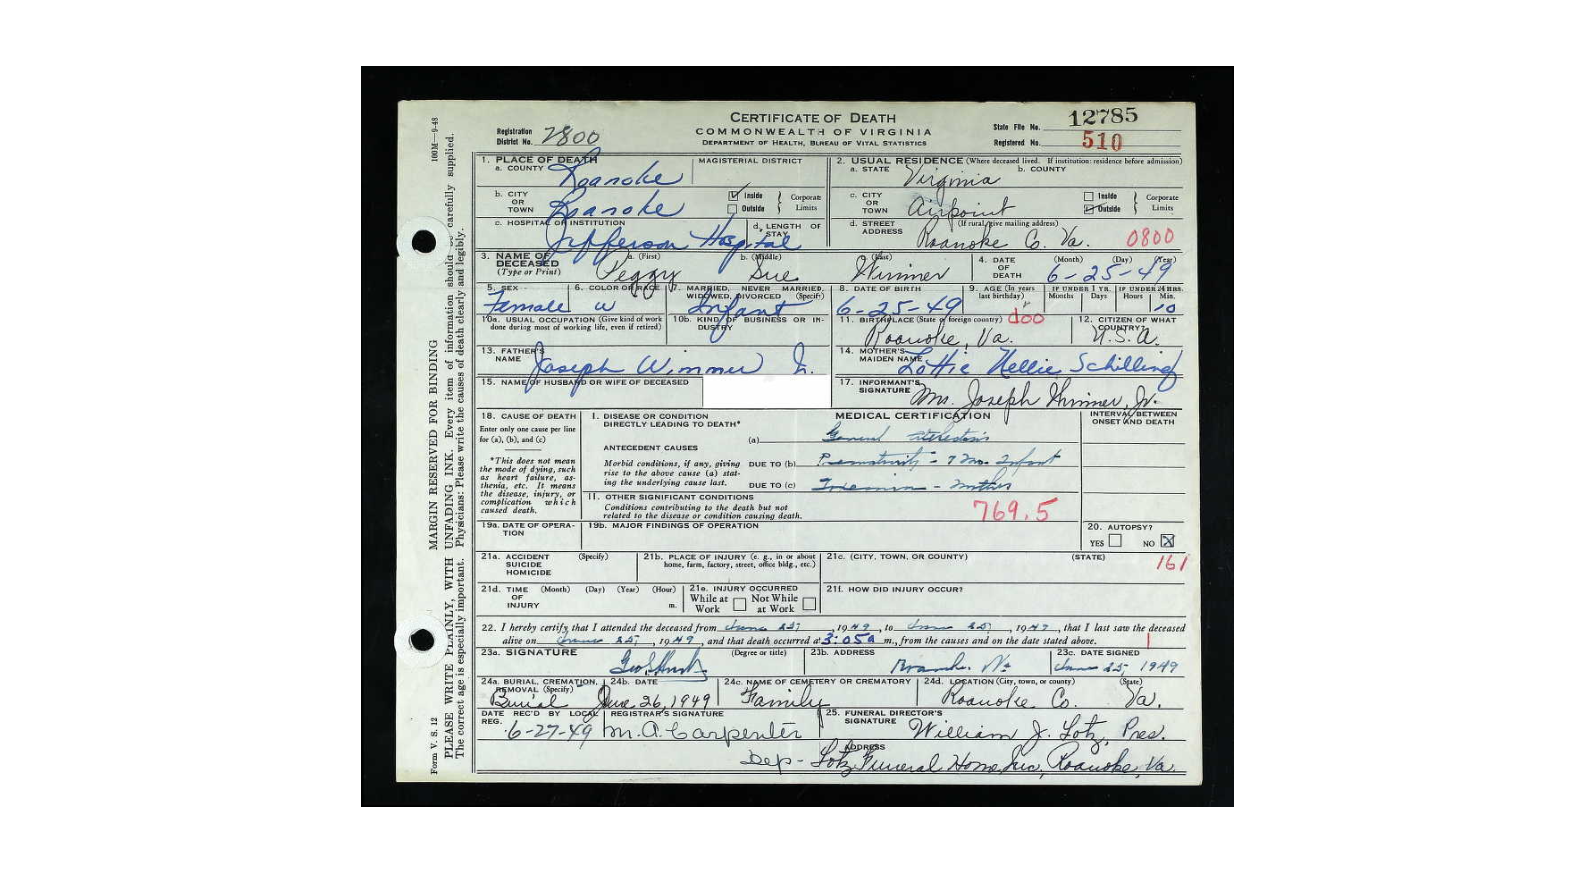 CERTIFICATE OF DEATH
COMMONWEALTH OF VIRGINIA
DEPARTMENT OF HEALTH, BUREAU OF VITAL STATISTICS
Registration District No. 2800
State File No. 12785
Registered No. 510
100M—9-48
MARGIN RESERVED FOR BINDING
PLEASE WRITE PLAINLY, WITH UNFADING INK. Every item of information should be carefully supplied.
The correct age is especially important. Physicians: Please write the causes of death clearly and legibly.
Form V. S. 12
1. PLACE OF DEATH
a. COUNTY Roanoke
MAGISTERIAL DISTRICT
b. CITY OR TOWN Roanoke
Inside Outside Corporate Limits
c. HOSPITAL OR INSTITUTION Jefferson Hospital
d. LENGTH OF STAY
2. USUAL RESIDENCE (Where deceased lived. If institution: residence before admission)
a. STATE Virginia b. COUNTY
c. CITY OR TOWN Airpoint
Inside Outside Corporate Limits
d. STREET ADDRESS (If rural, give mailing address) Roanoke Co. Va. 0800
3. NAME OF DECEASED (Type or Print) a. (First) Peggy b. (Middle) Sue c. (Last) Wimmer
4. DATE OF DEATH (Month) (Day) (Year) 6-25-49
5. SEX Female
6. COLOR OR RACE W
7. MARRIED, NEVER MARRIED, WIDOWED, DIVORCED (Specify) Infant
8. DATE OF BIRTH 6-25-49
9. AGE (In years last birthday) IF UNDER 1 YR. Months Days IF UNDER 24 HRS. Hours Min. 10
10a. USUAL OCCUPATION (Give kind of work done during most of working life, even if retired)
10b. KIND OF BUSINESS OR INDUSTRY
11. BIRTHPLACE (State or foreign country) Roanoke, Va. d00
12. CITIZEN OF WHAT COUNTRY? U.S.A.
13. FATHER'S NAME Joseph Wimmer Jr.
14. MOTHER'S MAIDEN NAME Lottie Nellie Schilling
15. NAME OF HUSBAND OR WIFE OF DECEASED
17. INFORMANT'S SIGNATURE Mrs. Joseph Wimmer, Jr.
18. CAUSE OF DEATH
Enter only one cause per line for (a), (b), and (c)
*This does not mean the mode of dying, such as heart failure, asthenia, etc. It means the disease, injury, or complication which caused death.
MEDICAL CERTIFICATION
INTERVAL BETWEEN ONSET AND DEATH
I. DISEASE OR CONDITION DIRECTLY LEADING TO DEATH* (a) General
ANTECEDENT CAUSES
Morbid conditions, if any, giving rise to the above cause (a) stating the underlying cause last.
DUE TO (b) Prematurity - 7 Mo. Infant
DUE TO (c) Toxemia - mother
II. OTHER SIGNIFICANT CONDITIONS
Conditions contributing to the death but not related to the disease or condition causing death.
769.5
19a. DATE OF OPERATION
19b. MAJOR FINDINGS OF OPERATION
20. AUTOPSY?
YES NO X
21a. ACCIDENT SUICIDE HOMICIDE (Specify)
21b. PLACE OF INJURY (e. g., in or about home, farm, factory, street, office bldg., etc.)
21c. (CITY, TOWN, OR COUNTY) (STATE)
161
21d. TIME OF INJURY (Month) (Day) (Year) (Hour) m.
21e. INJURY OCCURRED While at Work Not While at Work
21f. HOW DID INJURY OCCUR?
22. I hereby certify that I attended the deceased from June 25, 1949, to June 25, 1949, that I last saw the deceased
alive on June 25, 1949, and that death occurred at 3:05 a m., from the causes and on the date stated above.
23a. SIGNATURE (Degree or title)
23b. ADDRESS Roanoke, Va
23c. DATE SIGNED June 25 1949
24a. BURIAL, CREMATION, REMOVAL (Specify) Burial
24b. DATE June 26, 1949
24c. NAME OF CEMETERY OR CREMATORY Family
24d. LOCATION (City, town, or county) (State) Roanoke Co. Va.
DATE REC'D BY LOCAL REG. 6-27-49
REGISTRAR'S SIGNATURE M.A. Carpenter
Dep-
25. FUNERAL DIRECTOR'S SIGNATURE William J. Lotz, Pres.
ADDRESS Lotz Funeral Home Inc, Roanoke, Va.